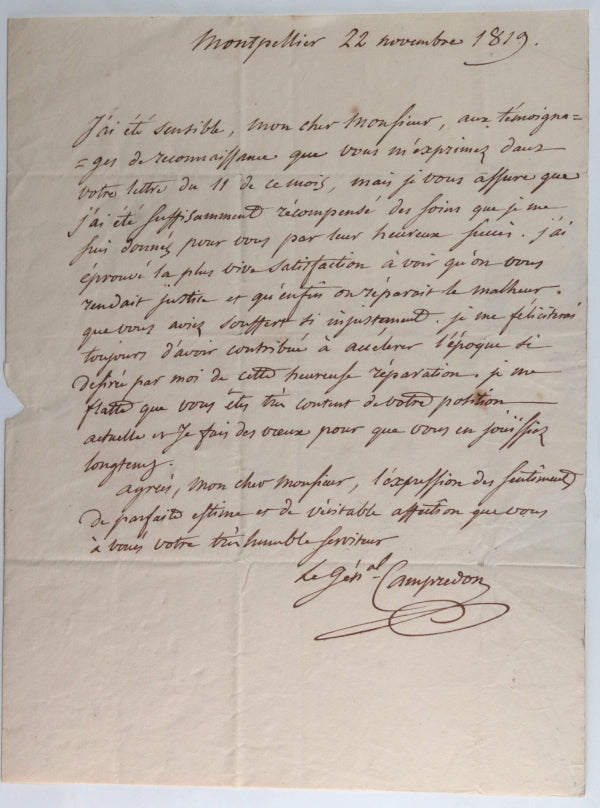 Montpellier 22 novembre 1819.
J'ai été sensible, mon cher Monsieur, aux témoigna=
=ges de reconnaissance que vous m'exprimez dans
votre lettre du 11 de ce mois, mais je vous assure que
j'ai été suffisamment récompensé des soins que je me
suis donnez pour vous par leur heureux succès. j'ai
éprouvé la plus vive satisfaction à voir qu'on vous
rendait justice et qu'enfin on réparait le malheur.
que vous aviez souffert si injustement. je me féliciterai
toujours d'avoir contribué à accélérer l'époque si
desirée par moi de cette heureuse réparation. je me
flatte que vous êtes très content de votre position
actuelle et je fais des vœux pour que vous en jouissiez
longtems.
agréés, mon cher Monsieur, l'expression des sentiments
de parfaite estime et de véritable affection que vous
à voués votre très humble serviteur
Le Gén.al Campredon